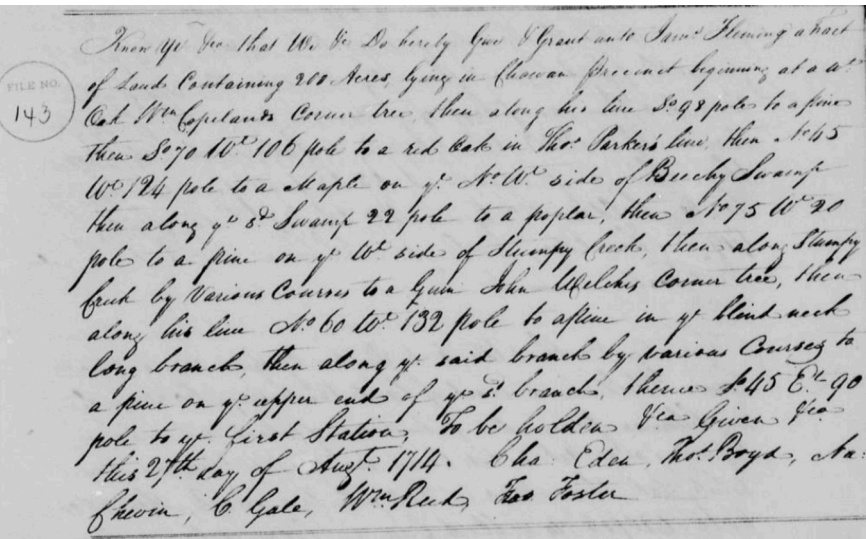 Know Ye &ca that We &c Do hereby Give & Grant unto James Fleming a tract
FILE NO.
143
of Land Containing 200 Acres, lying in Chowan Precinct beginning at a Wt.
Oak Wm Copelands Corner tree, then along his line So. 98 pole to a pine
then So 70 Wt. 106 pole to a red Oak in Thos. Parkers line, then No 45
Wt. 124 pole to a Maple on ye. No. Wt. side of Beechy Swamp
then along ye sd. Swamp 22 pole to a poplar, then No 75 Wt 20
pole to a pine on ye Wt. side of Stumpy Creek, then along Stumpy
Creek by Various Courses to a Gum John Welches Corner tree, then
along his line No 60 Wt. 132 pole to a pine in ye blind neck
long branch, then along ye. said branch by various Courses to
a pine on ye. upper end of ye sd. branch, thence So 45 Et. 90
pole to ye. first Station, To be holden &ca Given &ca
this 27th day of Augt. 1714. Cha: Eden, Thos. Boyd, Na:
Chevin, C. Gale, Wm Reed, Fra Foster